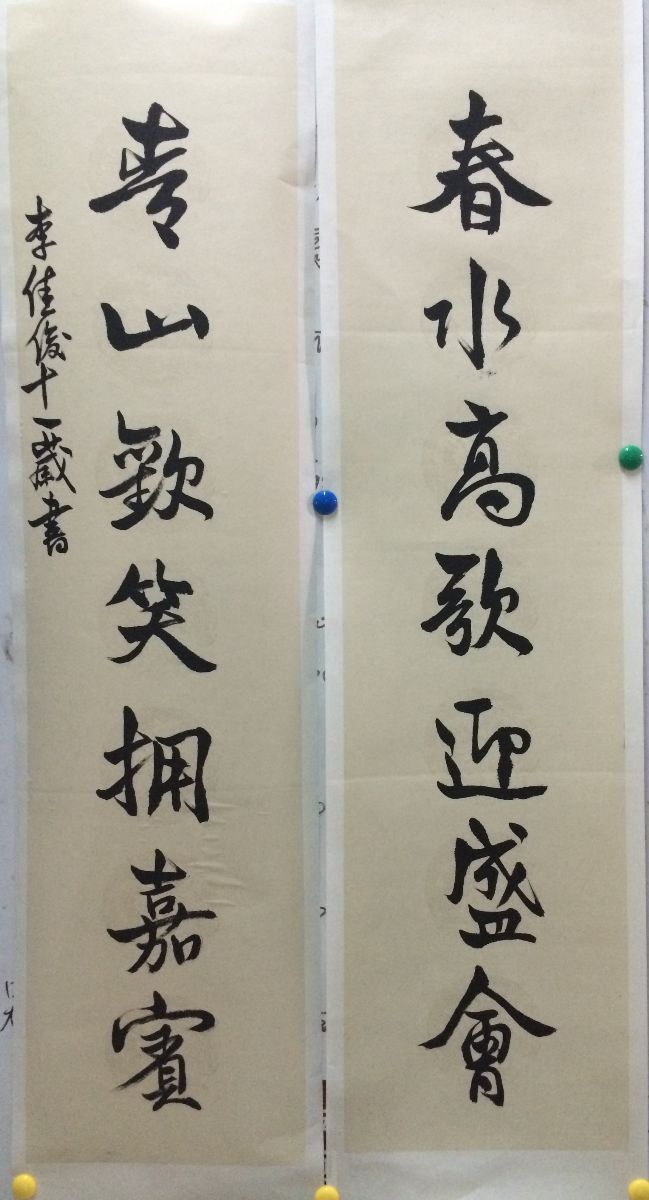 春水高歌迎盛會
青山歡笑拥嘉賓
李佳俊十一歲書